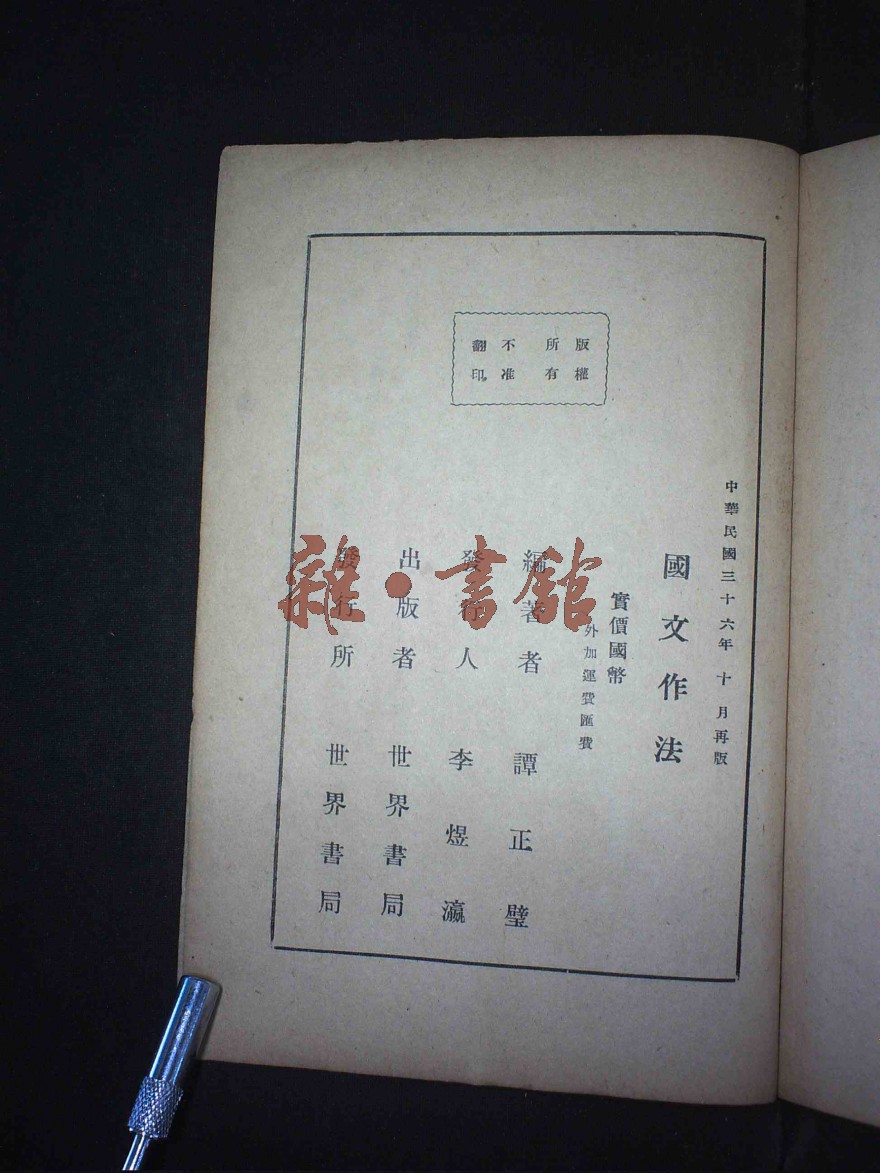 版權
所有
不准
翻印
中華民國三十六年十月再版
國文作法
實價國幣
外加運費匯費
編著者 譚正璧
發行人 李煜瀛
出版者 世界書局
發行所 世界書局
雜·書館